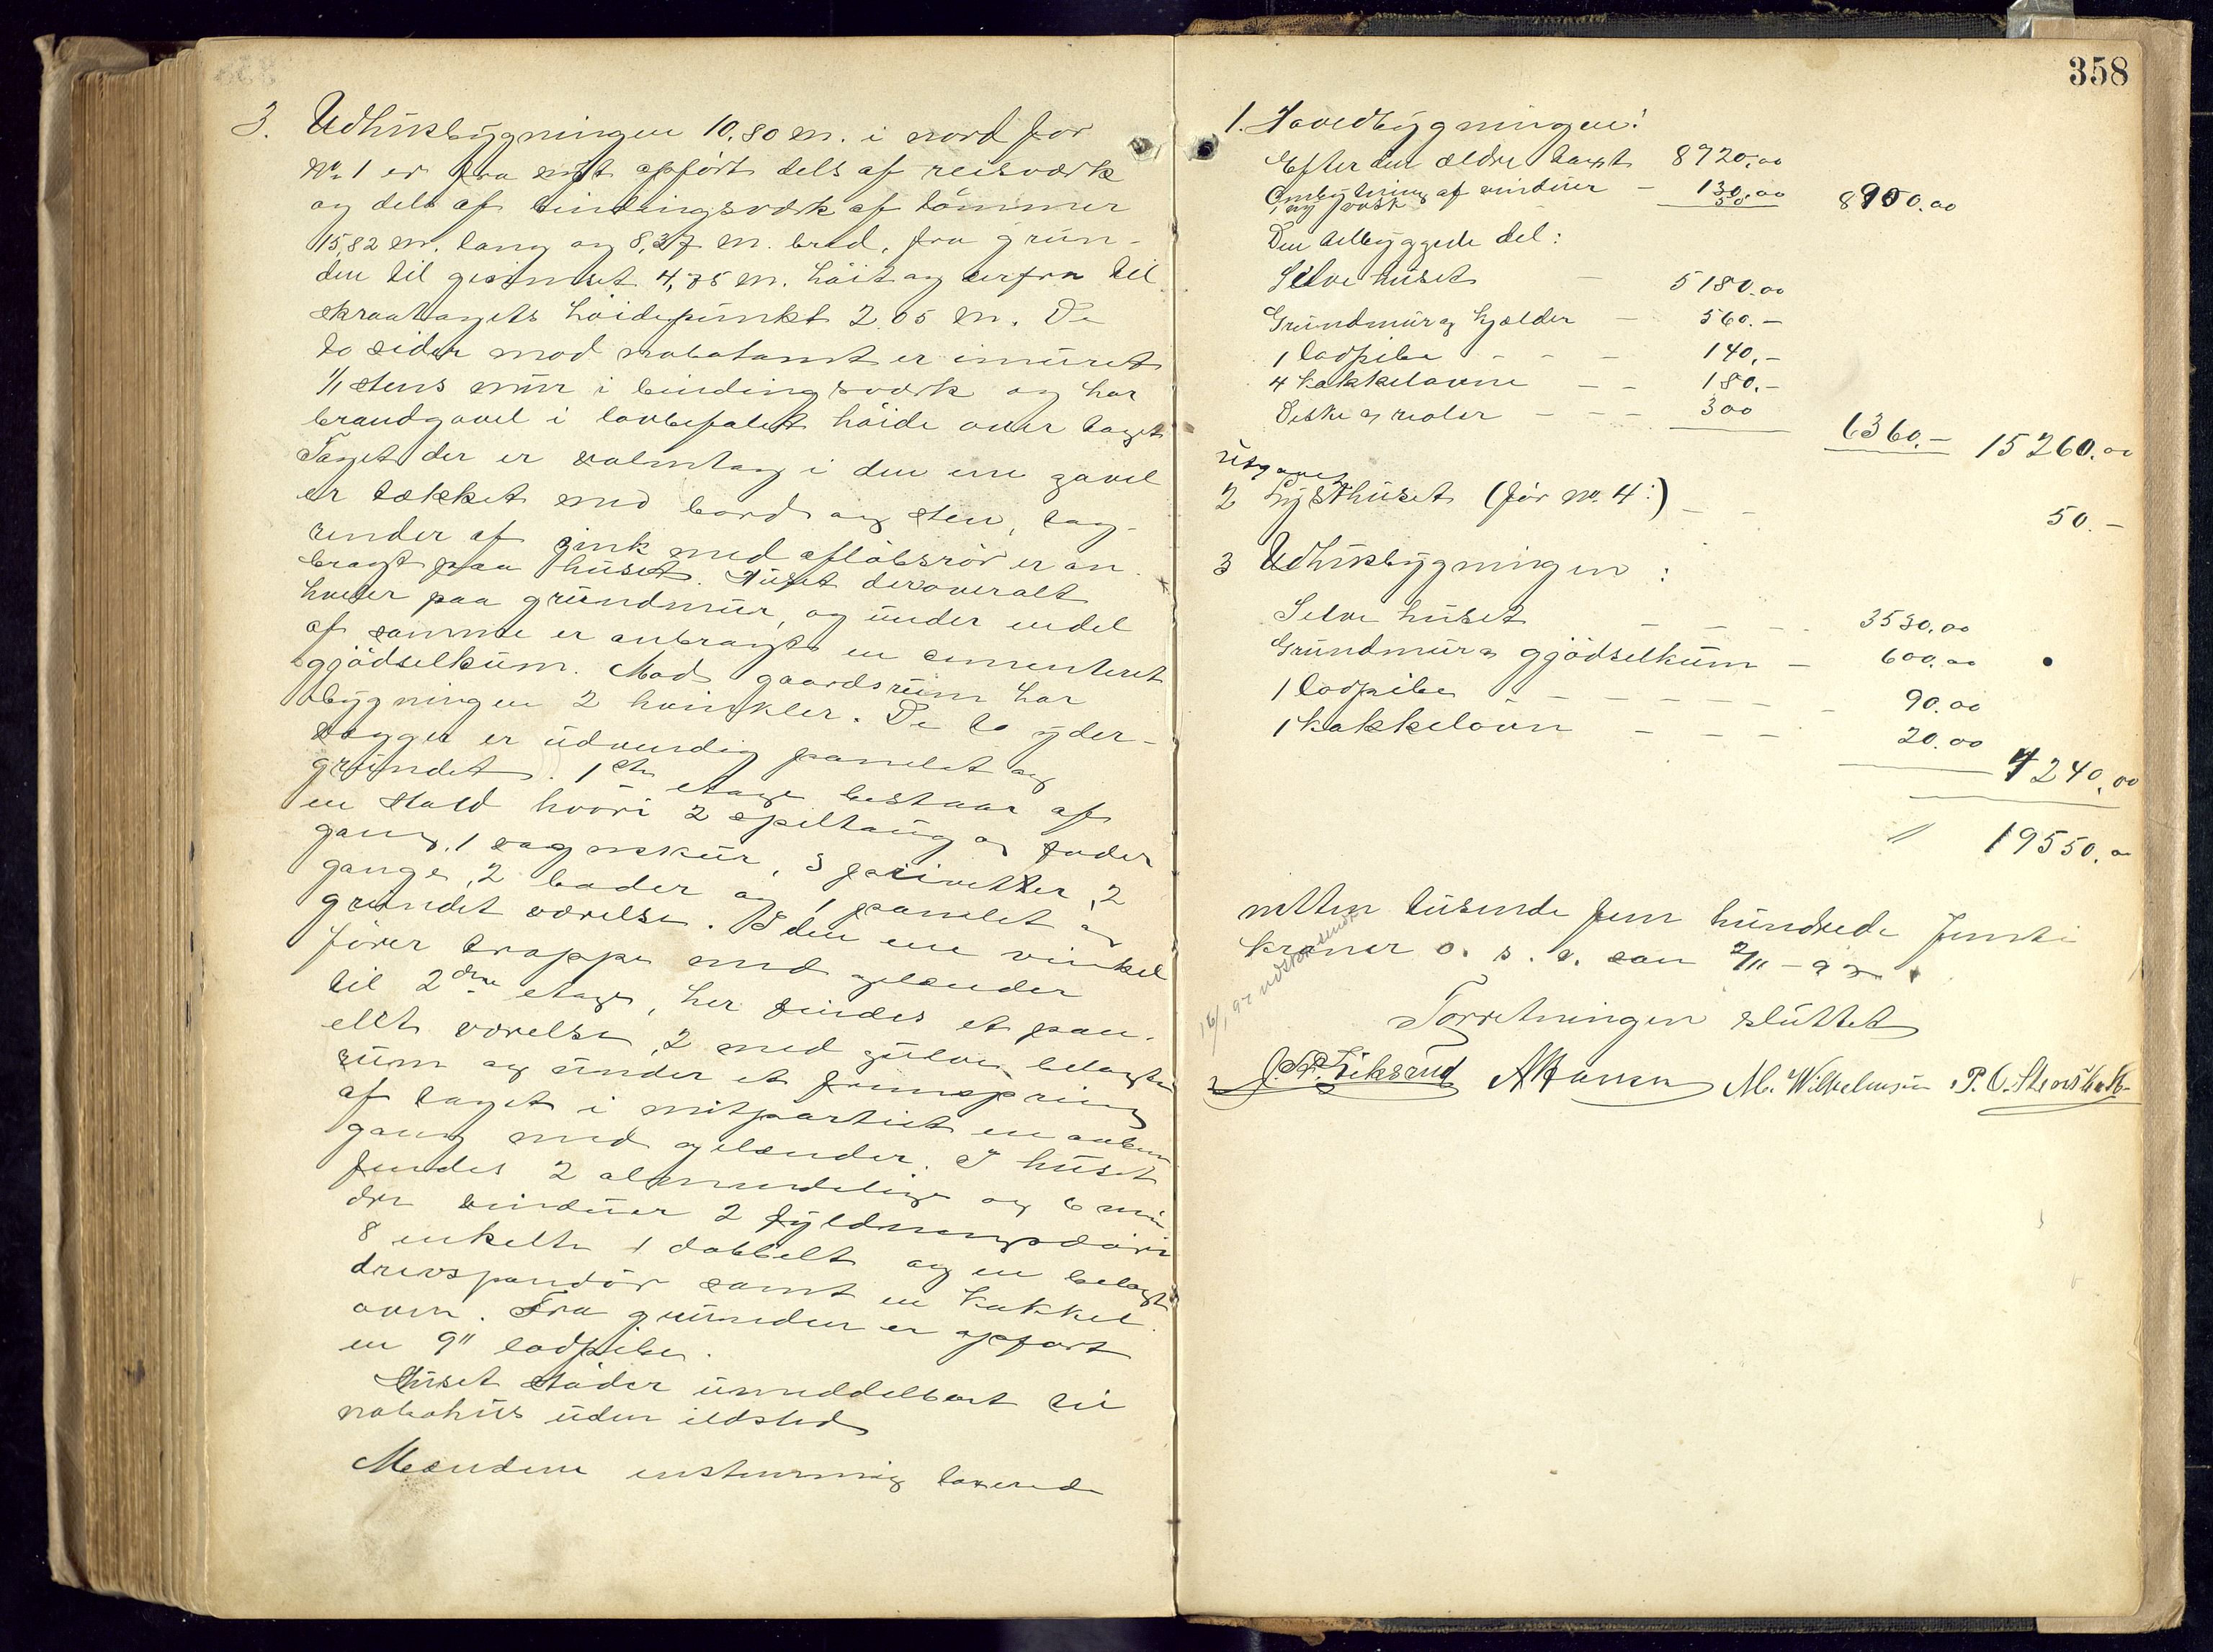 3. Udhusbygningen 10.80 m. i nord for
No. 1 er fra nyt opført dels af reisværk
og dels af bindingsværk af tømmer
15,82 m. lang og 8,27 m. bred, fra grun-
den til gesimset 4,75 m. høit og derfra til
skraatagets høidepunkt 2.05 m. De
to sider mod nabotomt er imuret
1/1 stens mur i bindingsværk og har
brandgavel i lovbefalet høide over taget
Taget der er valmtag i den ene gavel
er tækket med bord og sten, tag-
render af zink med afløbsrør er an
bragt paa huset. Huset der overalt
hviler paa grundmur, og under endel
af samme er anbragt en cementeret
gjødselkum. Mod gaardsrum har
bygningen 2 hvinkler. De to yder-
vægge er udvendig panelet og
grundet. 1ste etage bestaar af
en stald hvori 2 spiltaug og foder
gang, 1 vognskur, 3 privetter, 2
gange, 2 boder og 1 panelet og
grundet værelse. I den ene vinkel
fører trappe med gelænder
til 2den etage, her findes et pan-
ellt værelse, 2 med gulve belagte
rum og under et fremspring
af taget i mitpartiet en aaben
gang med gelænder. I huset
findes 2 almindelige og 6 min
dre vinduer 2 fyldningsdøre
8 enkelte 1 dobbelt og en belagt
drevspandør samt en kakkel
ovn. Fra grunden er opført
en 9" lodpibe.
Huset støder umiddelbart til
nabohus uden ildsted
Mændene enstemmig taxerede
358
1. Hovedbygningen:
Efter den ældre taxt 8720.00
Ombytning af vinduer – 130.00
1 ny vask 50 8900.00
Den tilbyggede del:
Selve huset – 5180.00
Grundmur og kjelder – 560.–
1 lodpibe – – – 140.–
4 kakkelovne – – 180.–
Diske og reoler – – – 300
6360.– 15260.00
Udgaaet
2 Lysthuset (før No. 4:) – – 50.–
3 Udhusbygningen:
Selve huset – – – – 3530.00
Grundmur og gjødselkum – 600.00
1 lodpibe – – – – – 90.00
1 kakkelovn – – – 20.00
4240.00
19550.00
nitten tusende fem hundrede femti
kroner o. s. v.
Forretningen sluttet
M. Wilhelmsen